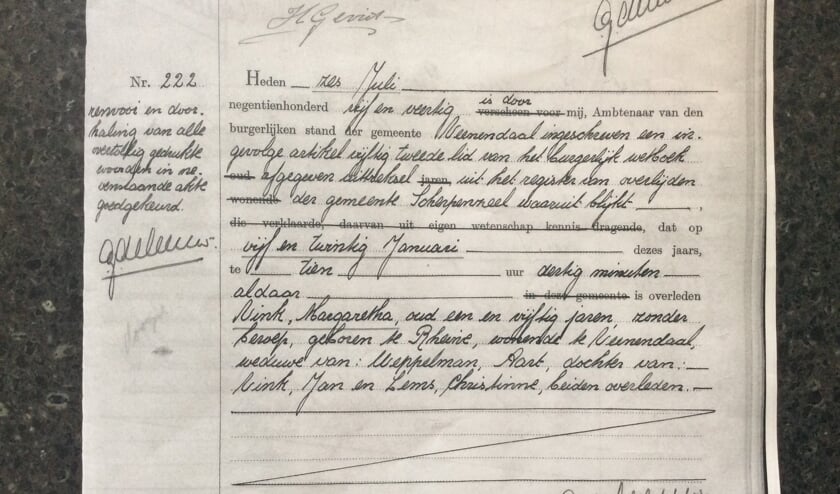 H Gevers
Nr. 222
renvooi en door-
haling van alle
overtollig gedrukte
woorden in ne-
venstaande akte
goedgekeurd.
G de Leeuw.
Heden zes Juli
negentienhonderd vijf en veertig is door verscheen voor mij, Ambtenaar van den
burgerlijken stand der gemeente Veenendaal ingeschreven een in-
gevolge artikel vijftig tweede lid van het burgerlijk wetboek
oud afgegeven uittreksel jaren, uit het register van overlijden
wonende der gemeente Scherpenzeel waaruit blijkt ,
die verklaarde, daarvan uit eigen wetenschap kennis dragende, dat op
vijf en twintig Januari dezes jaars,
te tien uur dertig minuten
aldaar in deze gemeente is overleden
Vink, Margaretha, oud een en vijftig jaren, zonder
beroep, geboren te Rheine, wonende te Veenendaal,
weduwe van: Weppelman, Aart, dochter van:
Vink, Jan en Lems, Christinne, beiden overleden.